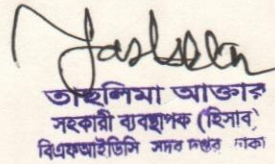 তাছলিমা আক্তার
সহকারী ব্যবস্থাপক (হিসাব)
বিএফআইডিসি সদর দপ্তর ঢাকা